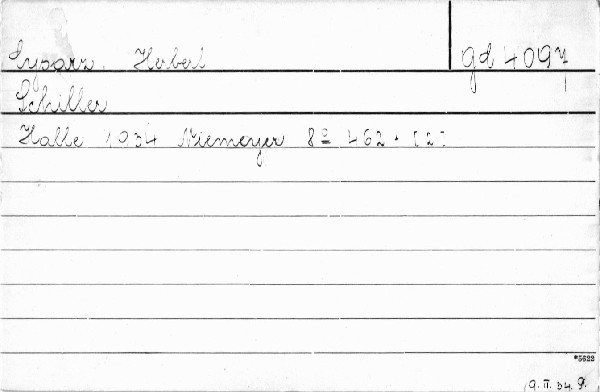 Cysarz, Herbert gd 4097
Schiller
Halle 1934 Niemeyer 8º 462 + [2]
*5622
9. II. 34.